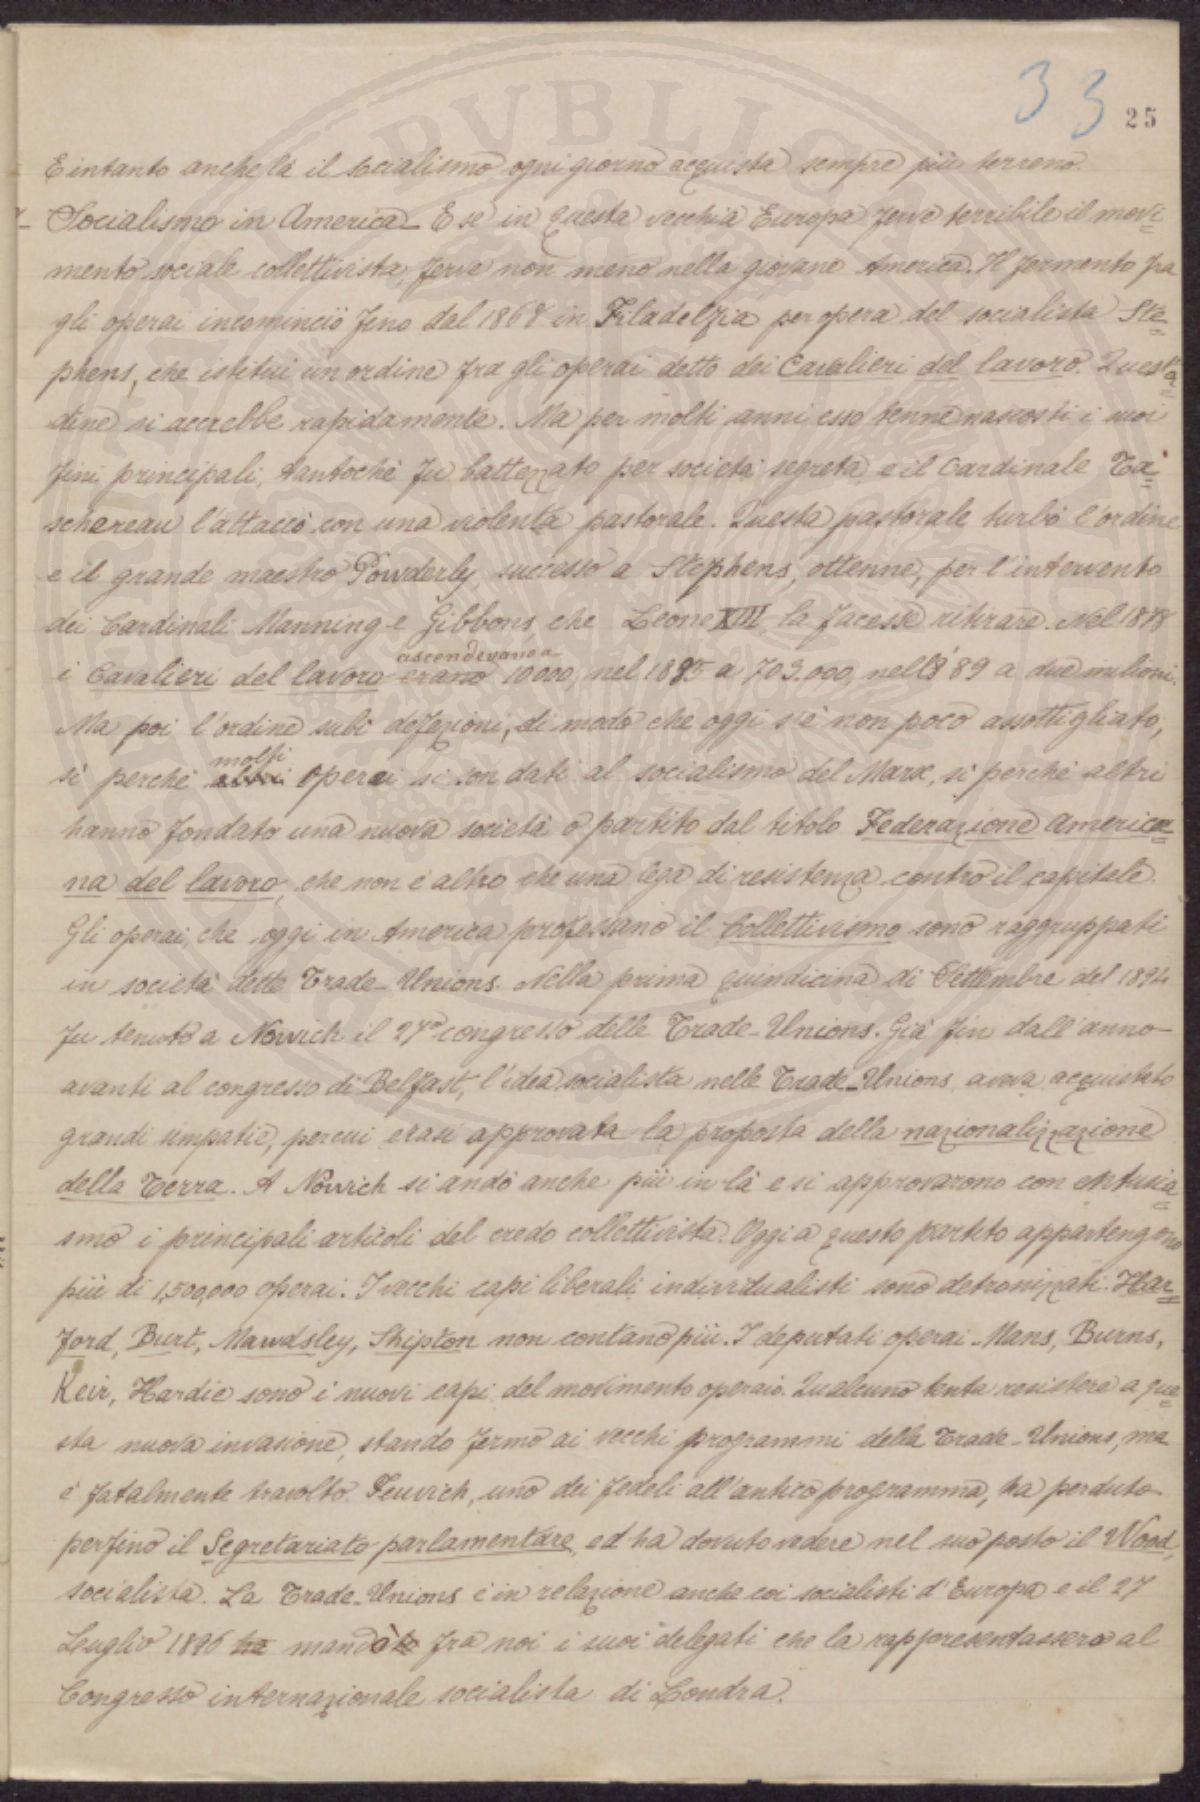 33 25
E intanto anche là il socialismo ogni giorno acquista sempre più terreno.
Socialismo in America – E se in questa vecchia Europa ferve terribile il movi
mento sociale collettivista, ferve non meno nella giovane America. Il fermento fra
gli operai incominciò fino dal 1868 in Filadelfia per opera del socialista Ste
phens, che istituì un ordine fra gli operai detto dei Cavalieri del lavoro.
dine si accrebbe rapidamente. Ma per molti anni esso tenne nascosti i suoi
fini principali, tantochè fu battezzato per società segreta e il Cardinale Ta
schereau l'attaccò con una violenta pastorale. Questa pastorale turbò l'ordine
e il grande maestro Powderly, successo a Stephens, ottenne, per l'intervento
dei Cardinali Manning e Gibbons che Leone XIII la facesse ritirare. Nel 1878
ascendevano a
i Cavalieri del lavoro erano 10000, nel 1885 a 703.000, nell'89 a due milioni.
Ma poi l'ordine subì defezioni, di modo che oggi s'è non poco assottigliato,
molti
sì perchè altri operai si son dati al socialismo del Marx, sì perchè altri
hanno fondato una nuova società o partito dal titolo Federazione America
na del lavoro, che non è altro che una lega di resistenza contro il capitale.
Gli operai, che oggi in America professano il Collettivismo sono raggruppati
in società dette Trade-Unions. Nella prima quindicina di Settembre del 1894
fu tenuto a Nowich il 27º congresso delle Trade-Unions. Già fin dall'anno
avanti al congresso di Belfast, l'idea socialista nelle Trade-Unions aveva acquistato
grandi simpatie, percui erasi approvata la proposta della nazionalizzazione
della Terra. A Nowich si andò anche più in là e si approvarono con entusia
smo i principali articoli del credo collettivista. Oggi a questo partito appartengono
più di 1,500,000 operai. I vecchi capi liberali individualisti sono detronizzati. Har
ford, Burt, Mawdsley, Shipton non contano più. I deputati operai Mans, Burns,
Keir, Hardie sono i nuovi capi del movimento operaio. Qualcuno tenta resistere a que
sta nuova invasione, stando fermo ai vecchi programmi della Trade-Unions, ma
è fatalmente travolto. Feuvich, uno dei fedeli all'antico programma, ha perduto
perfino il Segretariato parlamentare, ed ha dovuto vedere nel suo posto il Wood,
socialista. La Trade-Unions è in relazione anche coi socialisti d'Europa e il 27
Luglio 1896 ha mandato fra noi i suoi delegati che la rappresentassero al
Congresso internazionale socialista di Londra.